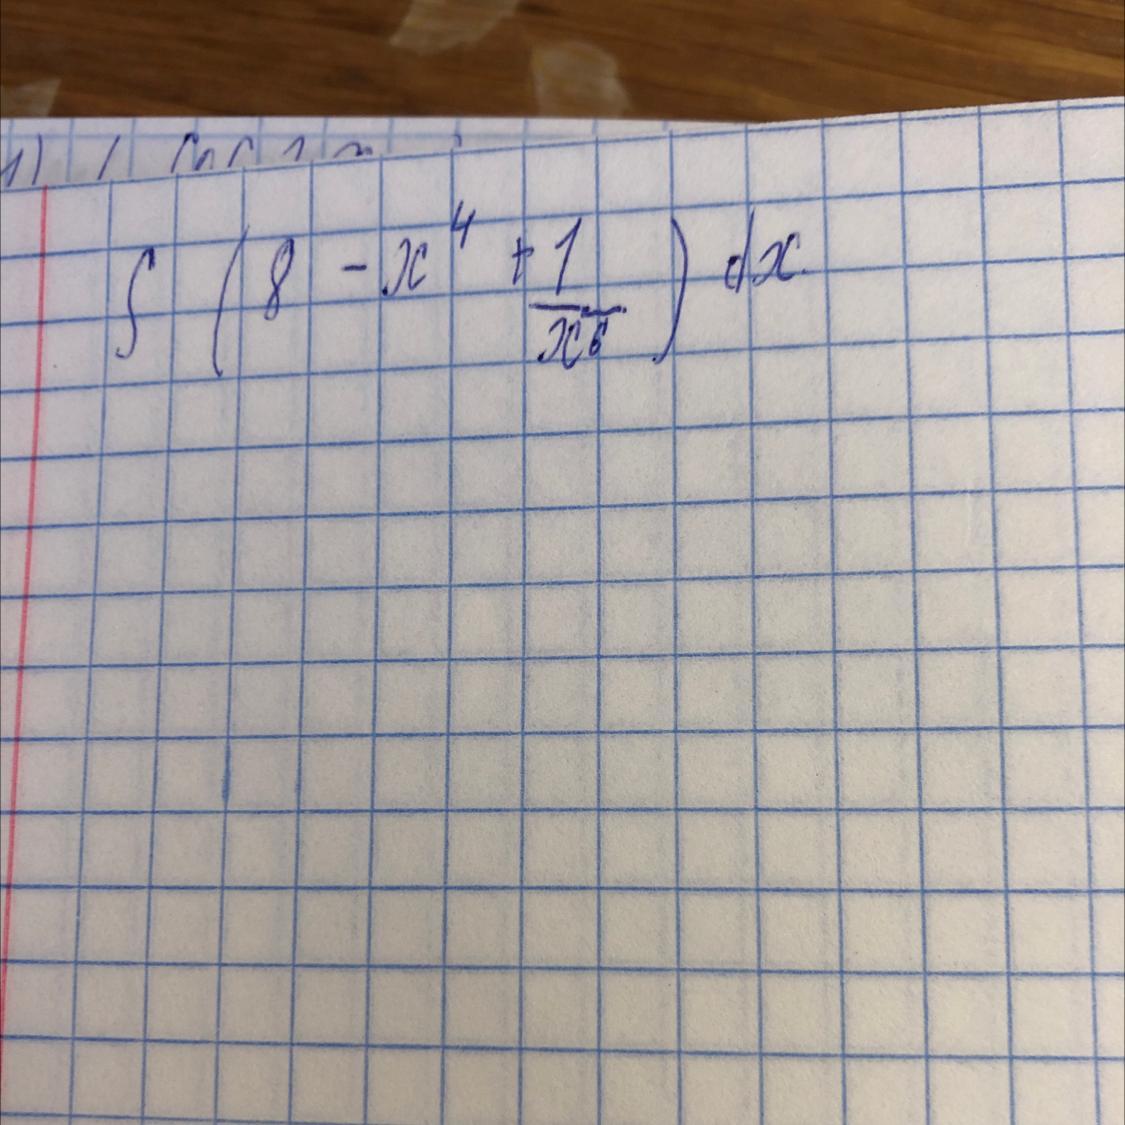 ∫ (8 - x⁴ + 1/x⁶) dx